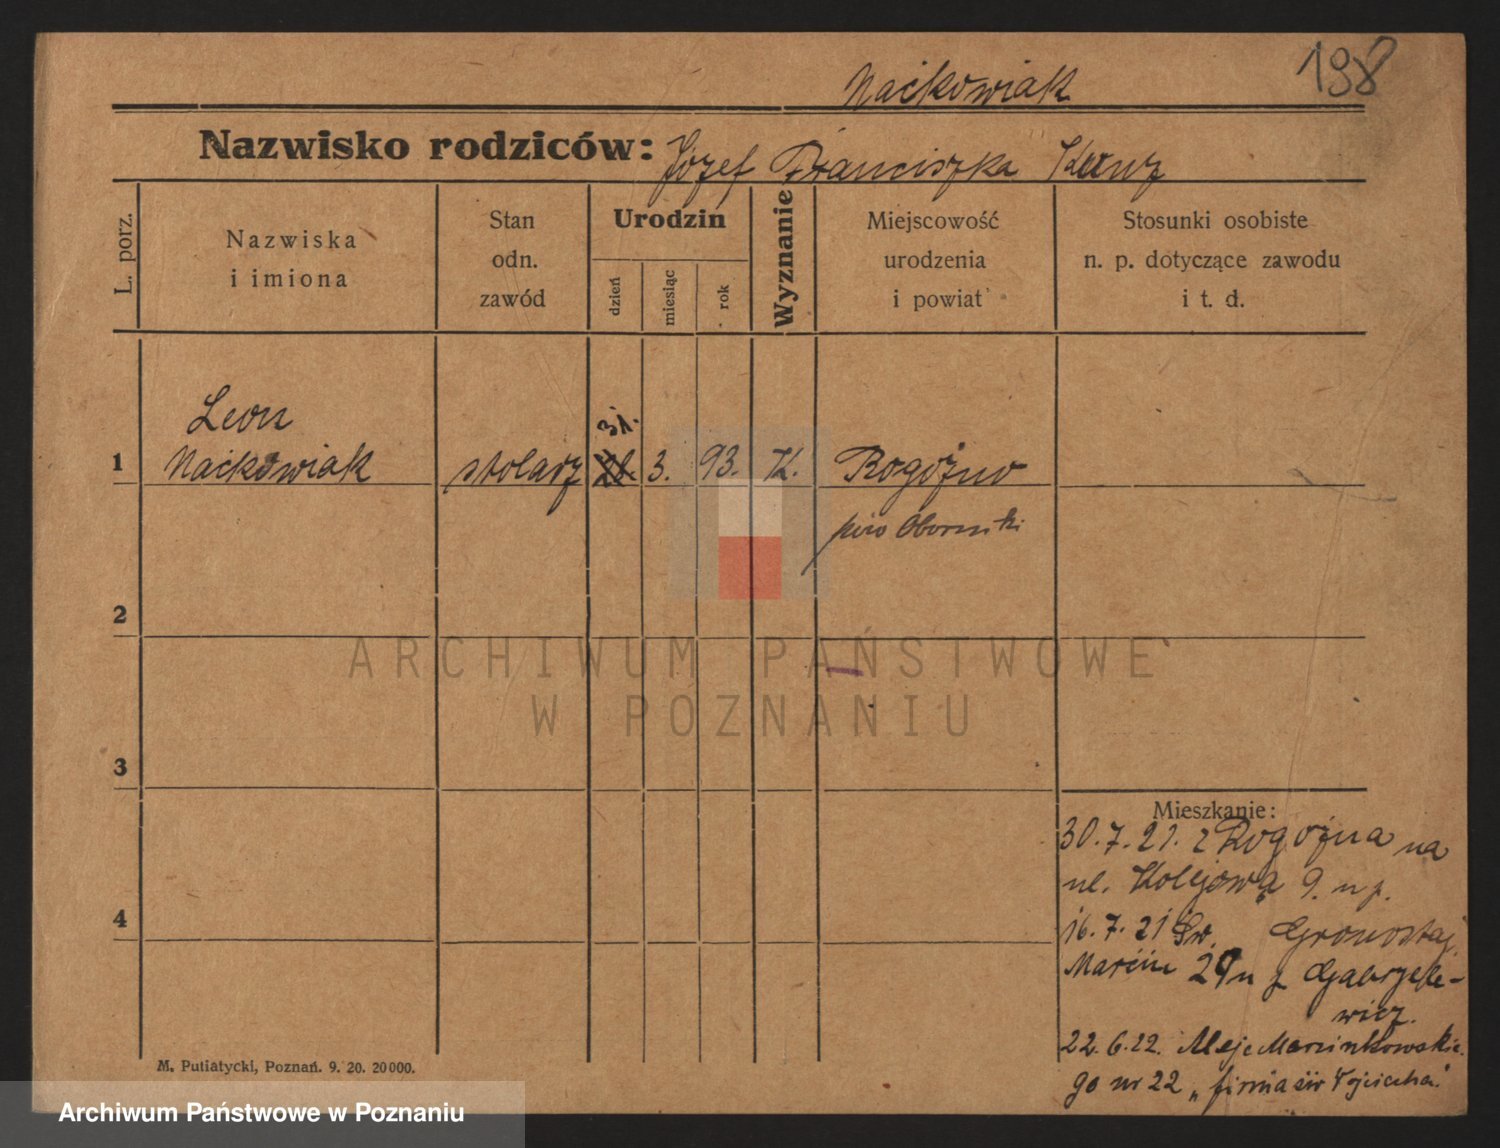 198
Naćkowiak
Nazwisko rodziców: Józef Franciszka Kunz
L. porz.
Nazwiska
i imiona
Stan
odn.
zawód
Urodzin
dzień
miesiąc
rok
Wyznanie
Miejscowość
urodzenia
i powiat
Stosunki osobiste
n. p. dotyczące zawodu
i t. d.
Leon
31.
1 Naćkowiak stolarz 28. 3. 93. K. Rogoźno
pow Oborniki
2
3
4
Mieszkanie:
30.7.21. z Rogoźna na
ul. Kolejową 9. u p.
Gronostaj.
16.7.21 Św.
Marcin 29 u p Gabryele-
wicz.
22.6.22. Aleje Marcinkowskie
go nr 22 „firma św Wojciecha"
M. Putiatycki, Poznań. 9. 20. 20000.
ARCHIWUM PAŃSTWOWE
W POZNANIU
Archiwum Państwowe w Poznaniu